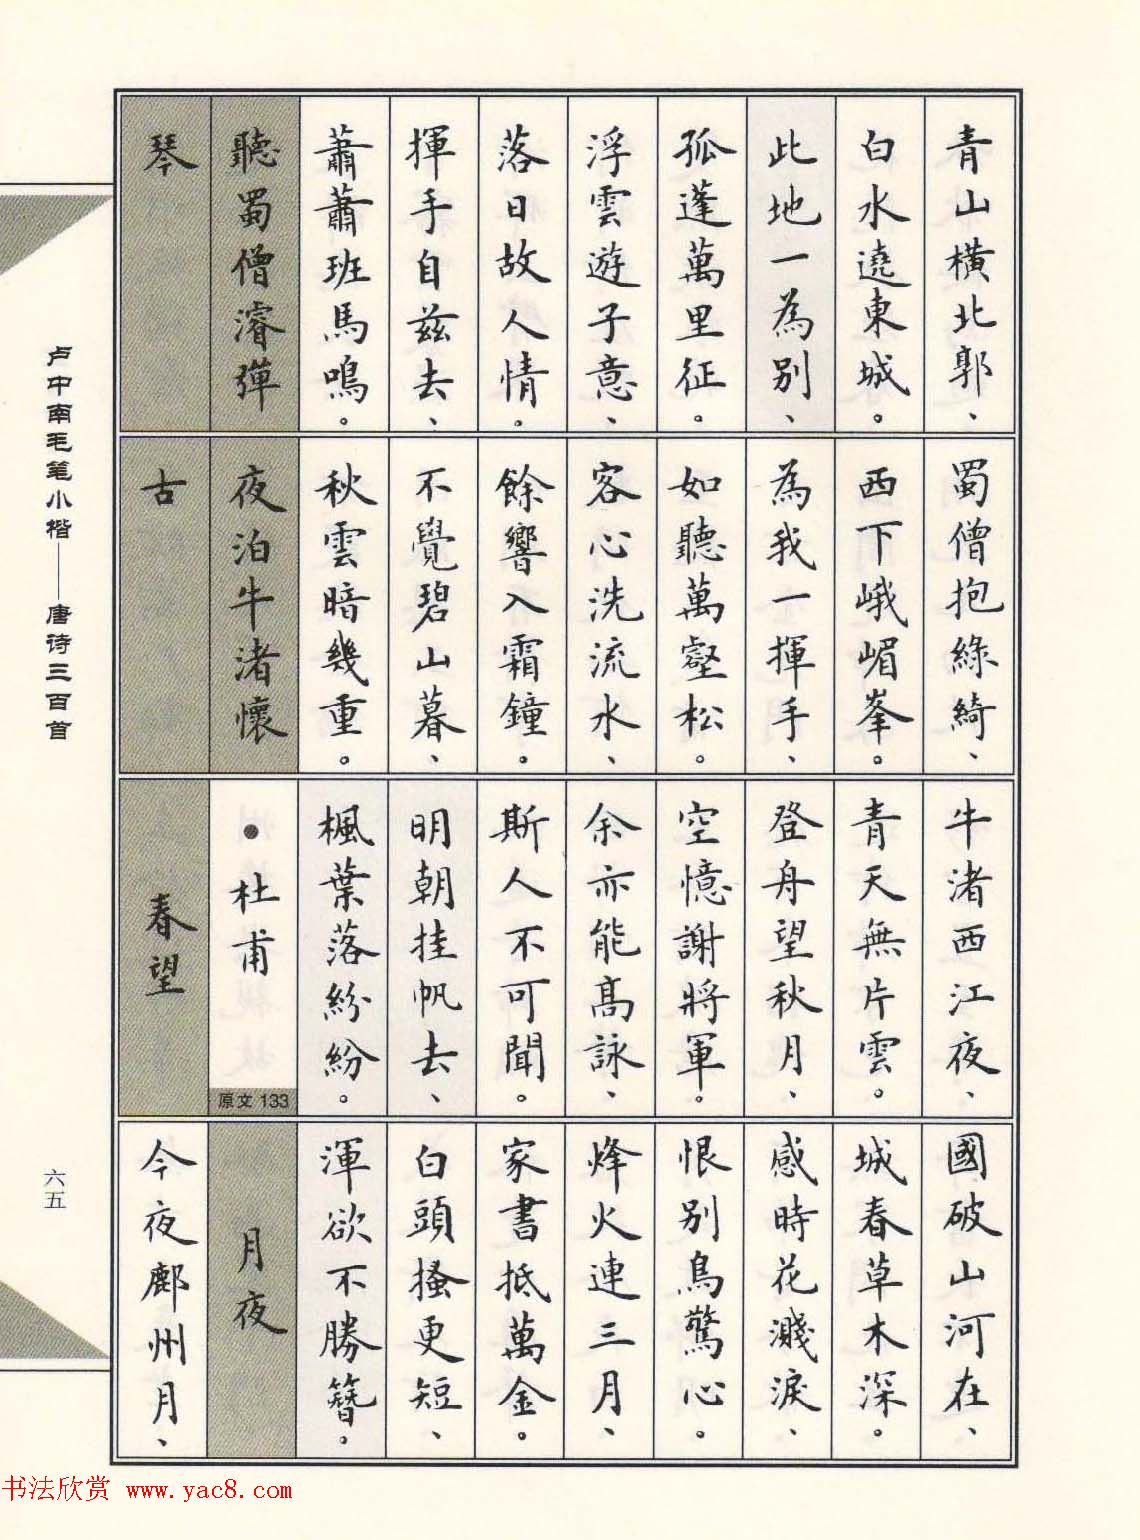 青山橫北郭、
白水遶東城。
此地一為別、
孤蓬萬里征。
浮雲遊子意、
落日故人情。
揮手自茲去、
蕭蕭班馬鳴。
聽蜀僧濬彈
琴
蜀僧抱綠綺、
西下峨嵋峯。
為我一揮手、
如聽萬壑松。
客心洗流水、
餘響入霜鐘。
不覺碧山暮、
秋雲暗幾重。
夜泊牛渚懷
古
牛渚西江夜、
青天無片雲。
登舟望秋月、
空憶謝將軍。
余亦能高詠、
斯人不可聞。
明朝挂帆去、
楓葉落紛紛。
•杜甫
原文 133
春望
國破山河在、
城春草木深。
感時花濺淚、
恨別鳥驚心。
烽火連三月、
家書抵萬金。
白頭搔更短、
渾欲不勝簪。
月夜
今夜鄜州月、
卢中南毛笔小楷——唐诗三百首
六五
书法欣赏 www.yac8.com